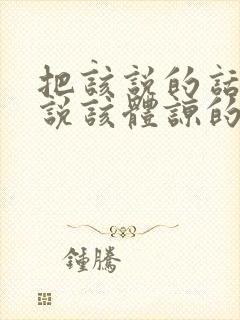 把該說的話
說該體諒的
鍾騰